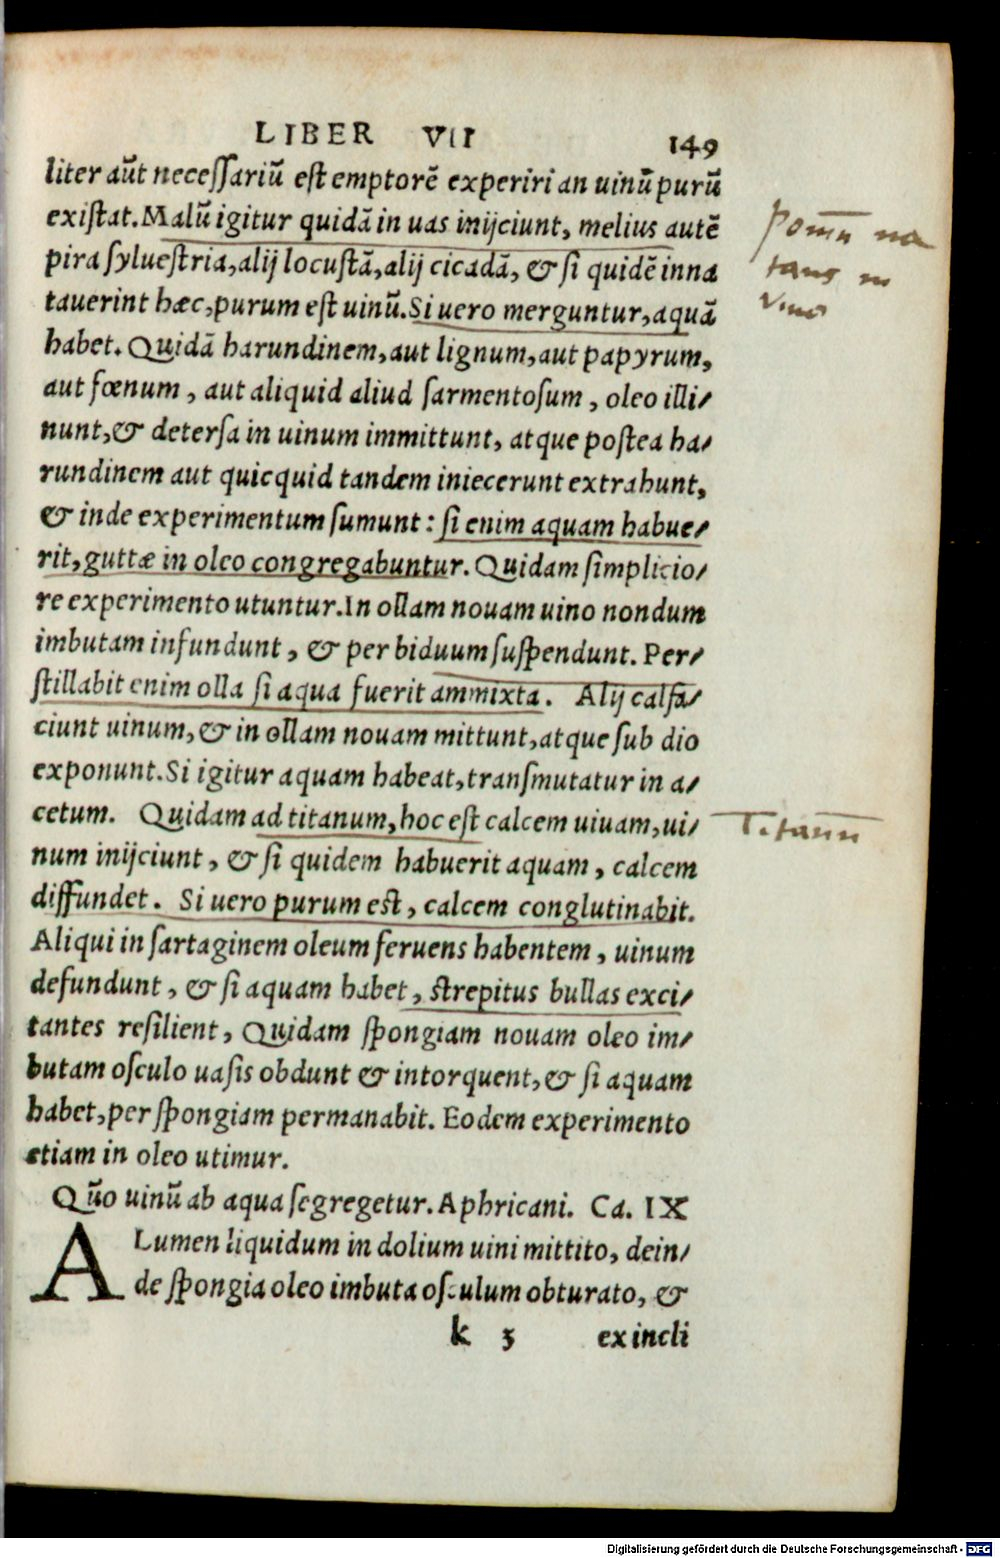 LIBER VII 149
liter aũt necessariũ est emptorẽ experiri an uinũ purũ
existat. Malũ igitur quidã in uas inijciunt, melius autẽ
pira syluestria, alij locustã, alij cicadã, & si quidẽ inna
tauerint hæc, purum est uinũ. Si uero merguntur, aquã
habet. Quidã harundinem, aut lignum, aut papyrum,
aut fœnum, aut aliquid aliud sarmentosum, oleo illi/
nunt, & detersa in uinum immittunt, atque postea ha/
rundinem aut quicquid tandem iniecerunt extrahunt,
& inde experimentum sumunt: si enim aquam habue/
rit, guttæ in oleo congregabuntur. Quidam simplicio/
re experimento utuntur. In ollam nouam uino nondum
imbutam infundunt, & per biduum suspendunt. Per/
stillabit enim olla si aqua fuerit ammixta. Alij calfa/
ciunt uinum, & in ollam nouam mittunt, atque sub dio
exponunt. Si igitur aquam habeat, transmutatur in a/
cetum. Quidam ad titanum, hoc est calcem uiuam, ui/
num inijciunt, & si quidem habuerit aquam, calcem
diffundet. Si uero purum est, calcem conglutinabit.
Aliqui in sartaginem oleum feruens habentem, uinum
defundunt, & si aquam habet, strepitus bullas exci/
tantes resilient, Quidam spongiam nouam oleo im/
butam osculo uasis obdunt & intorquent, & si aquam
habet, per spongiam permanabit. Eodem experimento
etiam in oleo utimur.
Quõ uinũ ab aqua segregetur. Aphricani. Ca. IX
ALumen liquidum in dolium uini mittito, dein/
de spongia oleo imbuta osculum obturato, &
k 3 ex incli
Pomũ na
tans in
vino
Titanũ
Digitalisierung gefördert durch die Deutsche Forschungsgemeinschaft - DFG